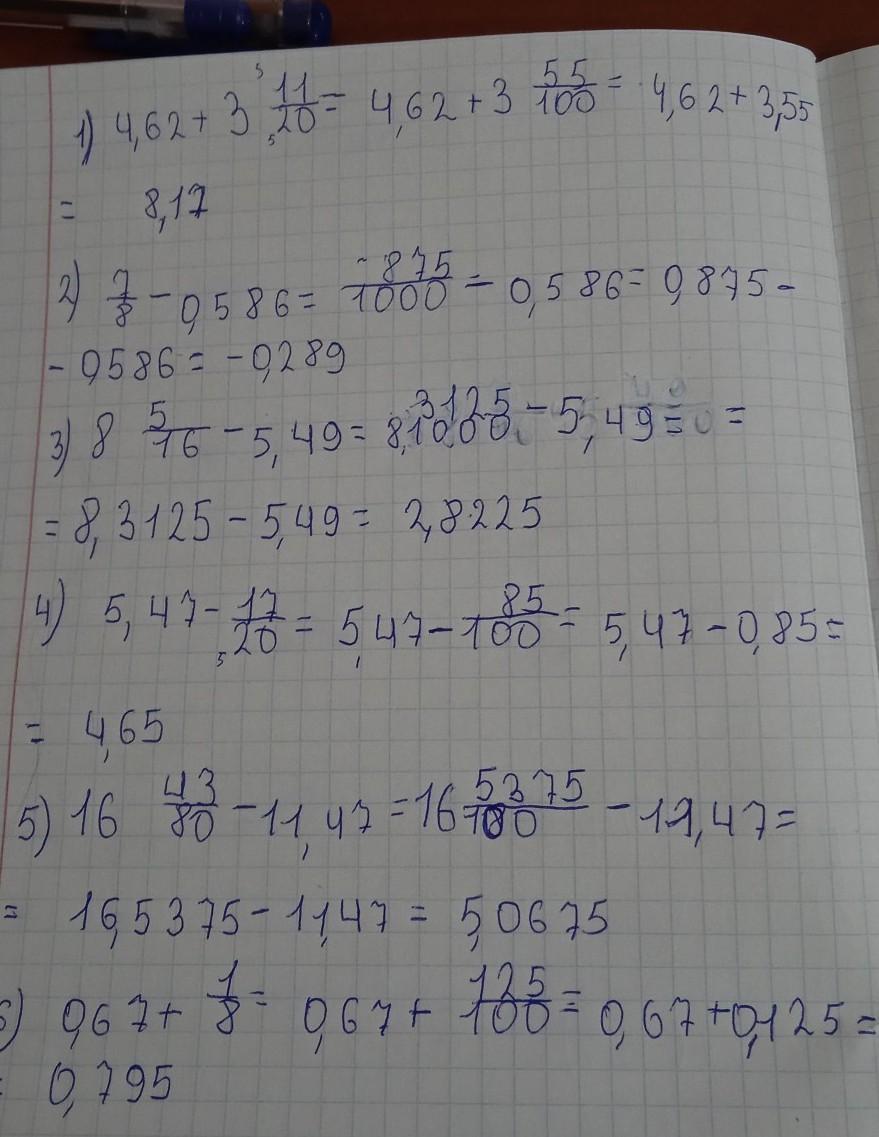 1) 4,62 + 3 11/20 = 4,62 + 3 55/100 = 4,62 + 3,55
= 8,17
2) 7/8 - 0,586 = -875/1000 - 0,586 = 0,875 -
- 0,586 = -0,289
3) 8 5/16 - 5,49 = 8, 3125/10000 - 5,49 = =
= 8,3125 - 5,49 = 2,8225
4) 5,47 - 17/20 = 5,47 - 85/100 = 5,47 - 0,85 =
= 4,65
5) 16 43/80 - 11,47 = 16 5375/100 - 11,47 =
= 16,5375 - 11,47 = 5,0675
6) 0,67 + 1/8 = 0,67 + 125/100 = 0,67 + 0,125 =
= 0,795